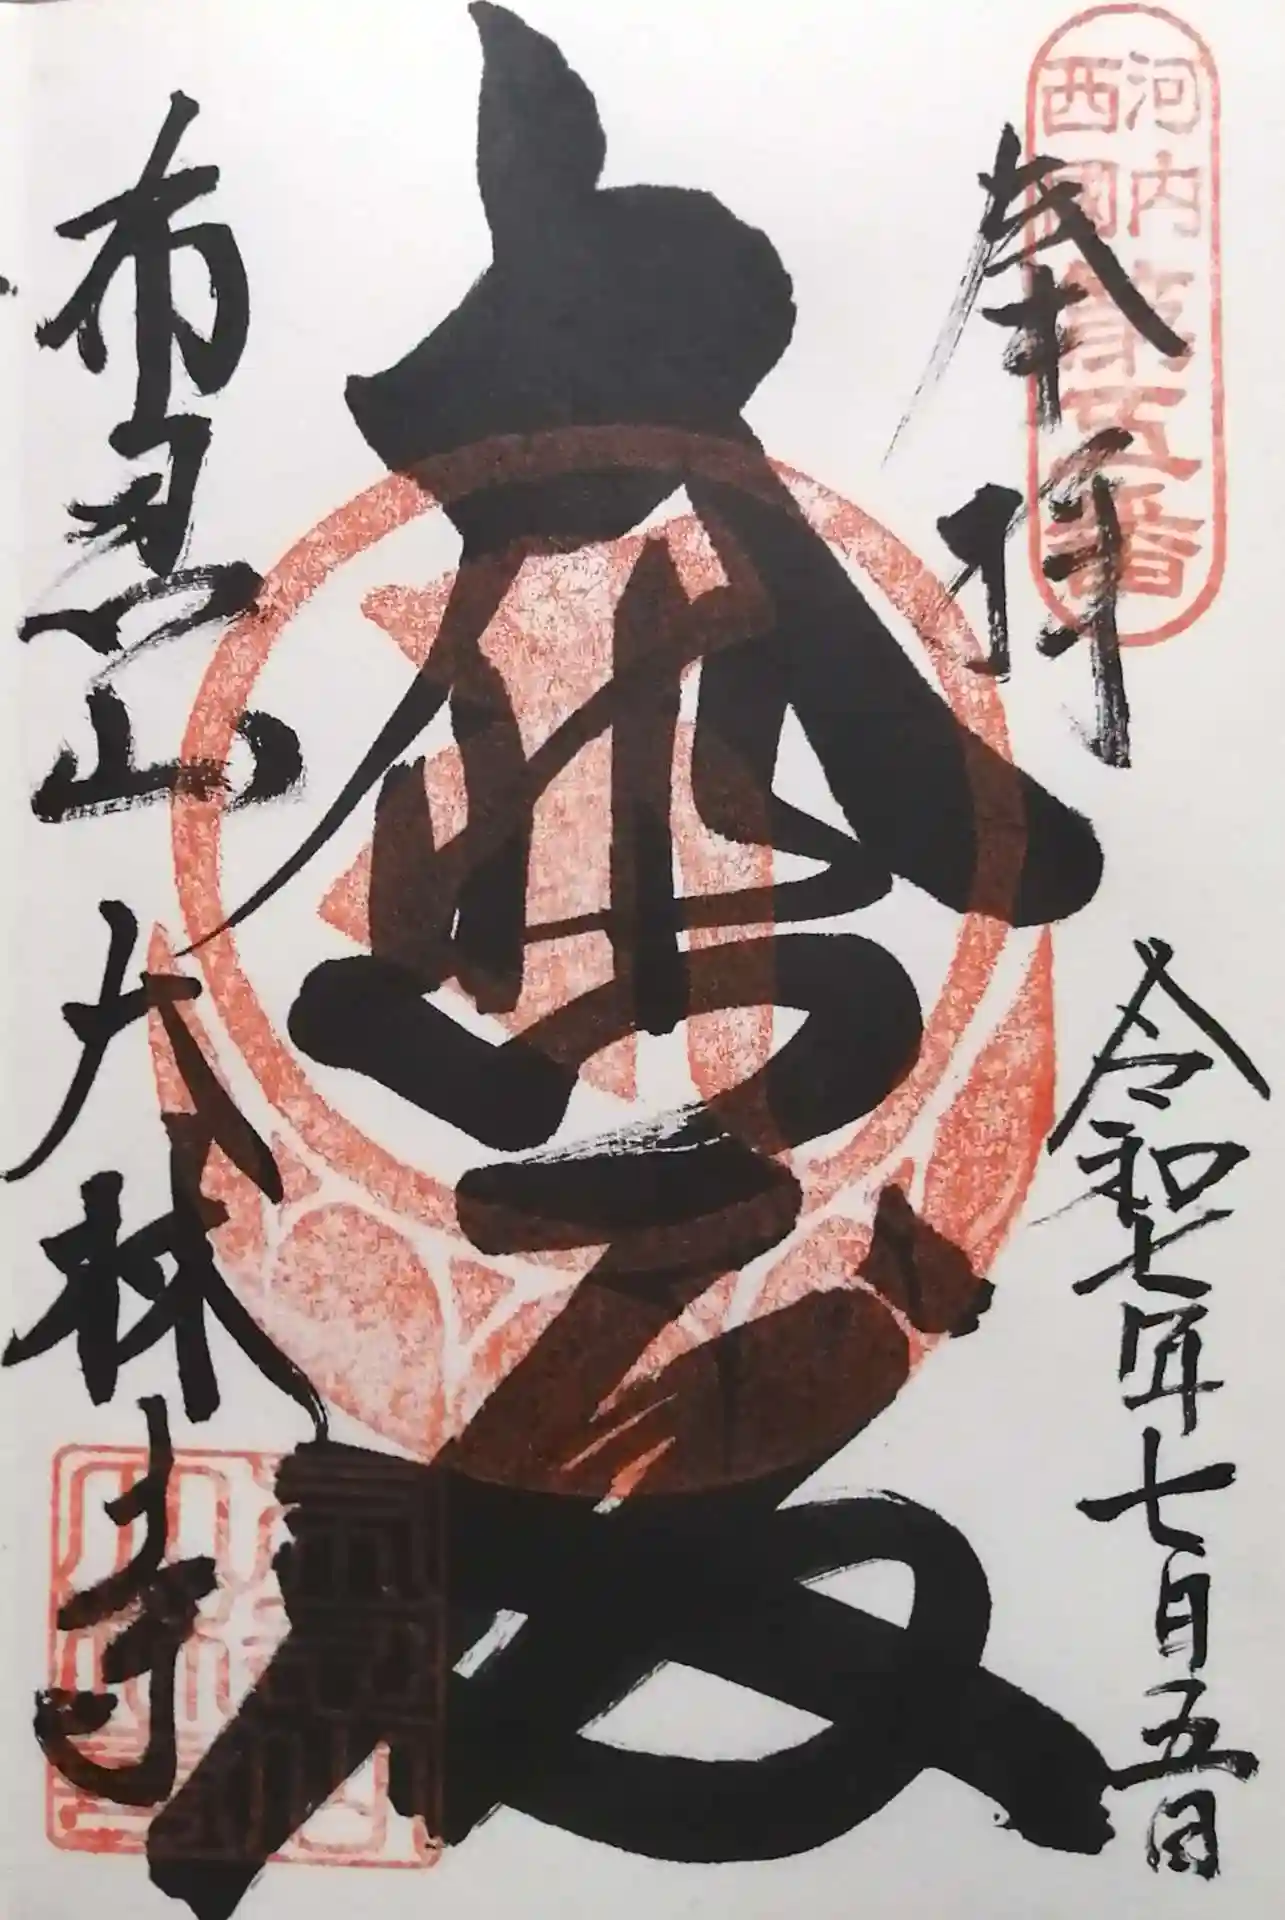 河内
西國
第五番
奉拝
令和七年七月五日
布忍山
大林寺